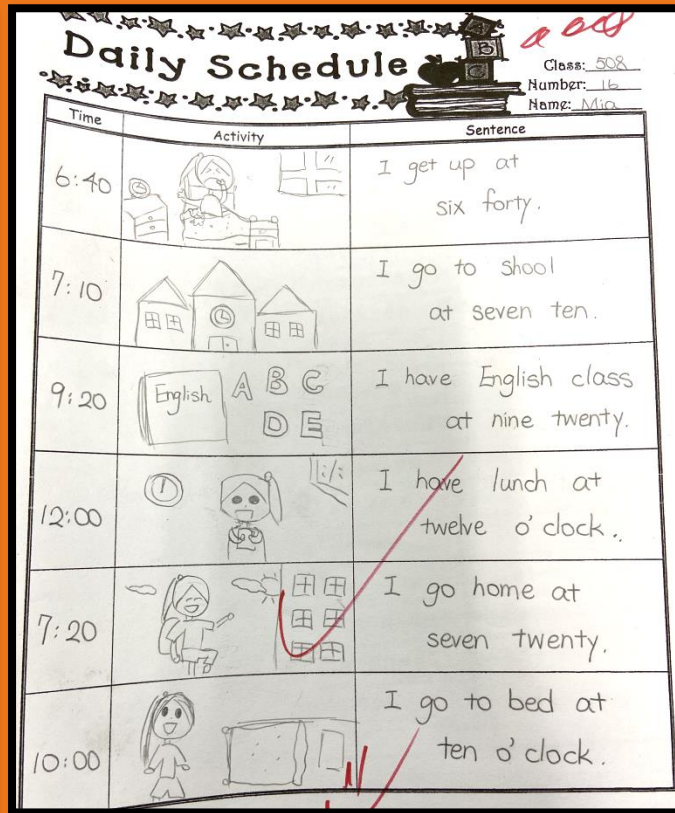 Daily Schedule
A
B
C
Class: 508
Number: 16
Name: Mia
Time
Activity
Sentence
6:40
I get up at
six forty.
7:10
I go to shool
at seven ten.
9:20
English A B C
D E
I have English class
at nine twenty.
12:00
I have lunch at
twelve o'clock.
7:20
I go home at
seven twenty.
10:00
I go to bed at
ten o'clock.